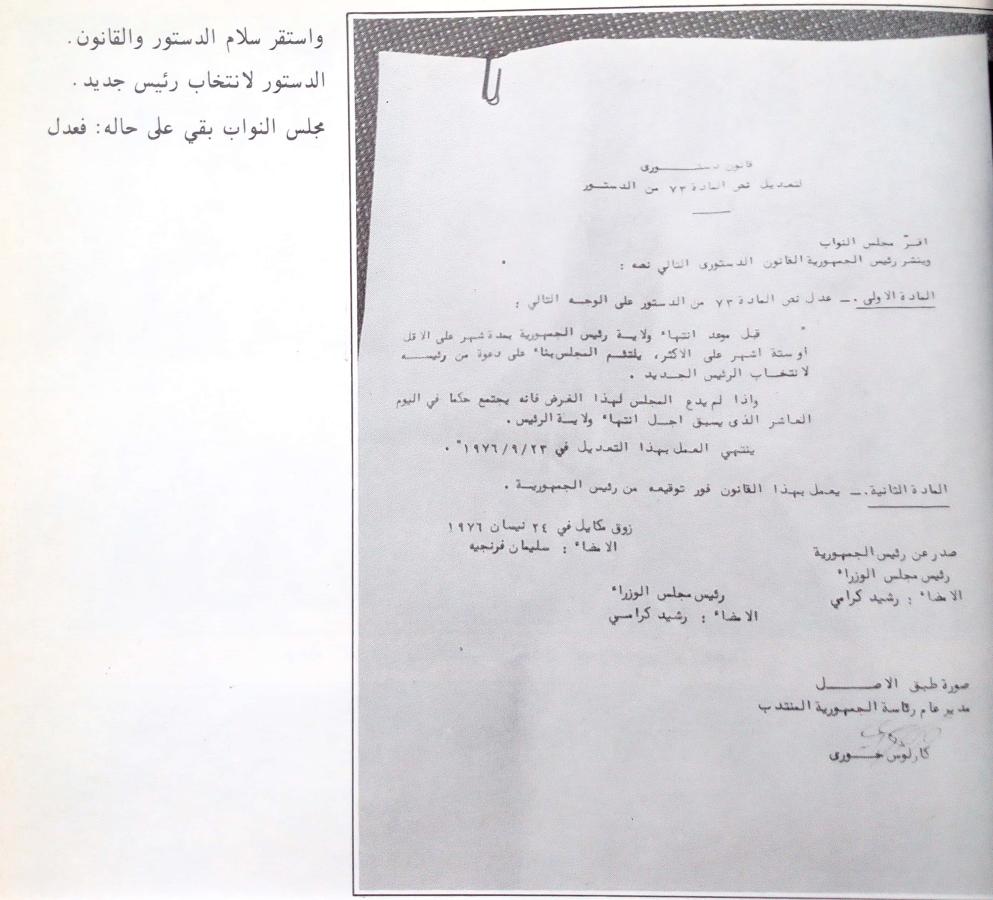 واستقر سلام الدستور والقانون.
الدستور لانتخاب رئيس جديد.
مجلس النواب بقي على حاله: فعدل
قانون دستـــورى
لتعديل نص المادة ٧٣ من الدستور
اقرّ مجلس النواب
وينشر رئيس الجمهورية القانون الدستورى التالي نصه :
المادة الاولى ._ عدل نص المادة ٧٣ من الدستور على الوجه التالي :
" قبل موعد انتهاء ولاية رئيس الجمهورية بمدة شهر على الاقل
او ستة اشهر على الاكثر، يلتئم المجلس بناء على دعوة من رئيسه
لانتخاب الرئيس الجديد .
واذا لم يدع المجلس لهذا الغرض فانه يجتمع حكما في اليوم
العاشر الذى يسبق اجل انتهاء ولاية الرئيس .
ينتهي العمل بهذا التعديل في ١٩٧٦/٩/٢٣" .
المادة الثانية ._ يعمل بهذا القانون فور توقيعه من رئيس الجمهورية .
زوق مكايل في ٢٤ نيسان ١٩٧٦
الامضاء : سليمان فرنجيه
صدر عن رئيس الجمهورية
رئيس مجلس الوزراء
الامضاء : رشيد كرامي
رئيس مجلس الوزراء
الامضاء : رشيد كرامـي
صورة طبق الاصـــل
مدير عام رئاسة الجمهورية المنتدب
كارلوس خـــورى